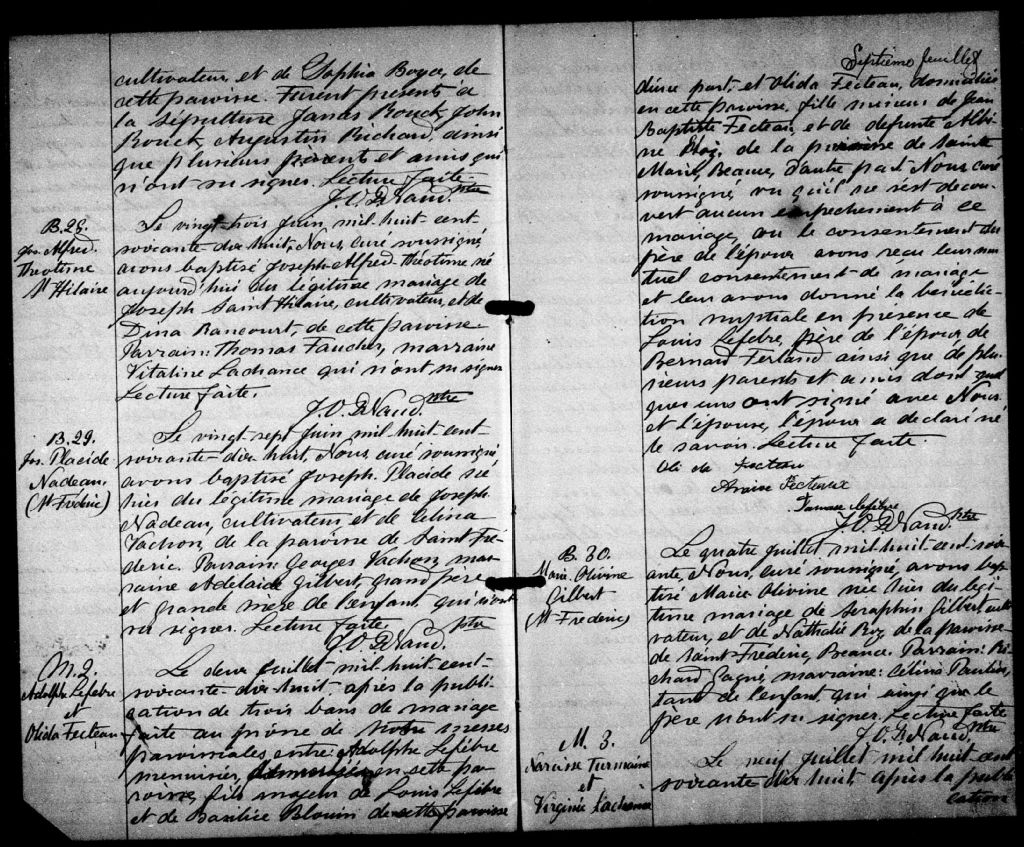 cultivateur, et de Sophia Boyer, de
cette paroisse. Furent présents à
la sépulture James Rouck, John
Rouck, Augustin Richard, ainsi
que plusieurs parents et amis qui
n'ont su signer. Lecture faite.
J. O. Naud. ptre
B. 28.
Jos. Alfred.
Théotime
St Hilaire
Le vingt-trois Juin mil-huit-cent-
soixante-dix-huit, Nous, curé soussigné
avons baptisé Joseph-Alfred-Théotime né
aujourd'hui du légitime mariage de
Joseph Saint Hilaire, cultivateur, et de
Dina Rancourt, de cette paroisse
Parrain: Thomas Faucher, marraine
Vitaline Lachance qui n'ont su signer
Lecture faite.
J. O. Naud. ptre
B. 29.
Jos. Placide
Nadeau
(St Fréderic)
Le vingt-sept Juin mil-huit-cent-
soixante-dix-huit, Nous, curé soussigné
avons baptisé Joseph-Placide né
hier du légitime mariage de Joseph
Nadeau, cultivateur, et de Célina
Vachon, de la paroisse de Saint-Fré-
deric. Parrain: Georges Vachon, mar-
raine Adelaide Gilbert, grand père
et grande mère de l'enfant, qui n'ont
su signer. Lecture faite.
J. O. Naud. ptre
M. 2.
Adolphe Lefèbre
et
Olida Fecteau
Le deux Juillet mil-huit-cent-
soixante-dix-huit, après la publi-
cation de trois bans de mariage
faite au prône de notre messes
paroissiales entre: Adolphe Lefèbre
menuisier, en cette pa-
roisse, fils majeur de Louis Lefèbre
et de Basilice Blouin de cette paroisse
Septième feuillet
d'une part, et Olida Fecteau, domiciliée
en cette paroisse, fille mineure de Jean
Baptiste Fecteau, et de défunte Albi-
ne de la paroisse de Sainte
Marie, Beauce, d'autre part. Nous curé
soussigné, vu qu'il ne s'est décou-
vert aucun empêchement à ce
mariage, vu le consentement du
père de l'épouse avons reçu leur mu-
tuel consentement de mariage
et leur avons donné la bénédic-
tion nuptiale en présence de
Louis Lefebre, père de l'époux, de
Bernard Ferland ainsi que de plu-
sieurs parents et amis dont quel
ques uns ont signé avec Nous
et l'épouse, l'époux a déclaré ne
le savoir. Lecture faite.
Fecteau
Fecteaux
Lefebre
J. O. Naud. ptre
B. 30.
Marie. Olivine
Gilbert
(St Fréderic)
Le quatre Juillet mil-huit-cent-soix-
ante, Nous, curé soussigné, avons bap
tisé Marie Olivine née hier du légi-
time mariage de Séraphin Gilbert culti
vateur, et de Nathalie Roy de la paroisse
de Saint-Fréderic, Beauce. Parrain: Ri-
chard Gagné, marraine: Célina Poulin,
tante de l'enfant, qui ainsi que le
père n'ont su signer. Lecture faite
J. O. Naud. ptre
M. 3.
Narcisse Turmaine
et
Virginie Lachance
Le neuf Juillet mil huit cent
soixante dix huit, après la publi
cation